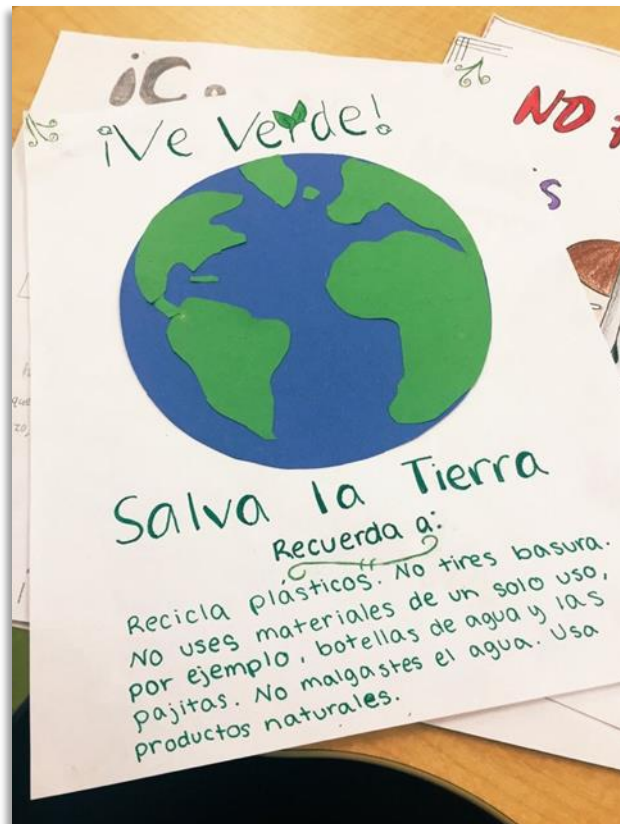 ¡C.
¡Ve Verde!
NO
s
Salva la Tierra
Recuerda a:
Recicla plásticos. No tires basura.
No uses materiales de un solo uso,
por ejemplo, botellas de agua y las
pajitas. No malgastes el agua. Usa
productos naturales.